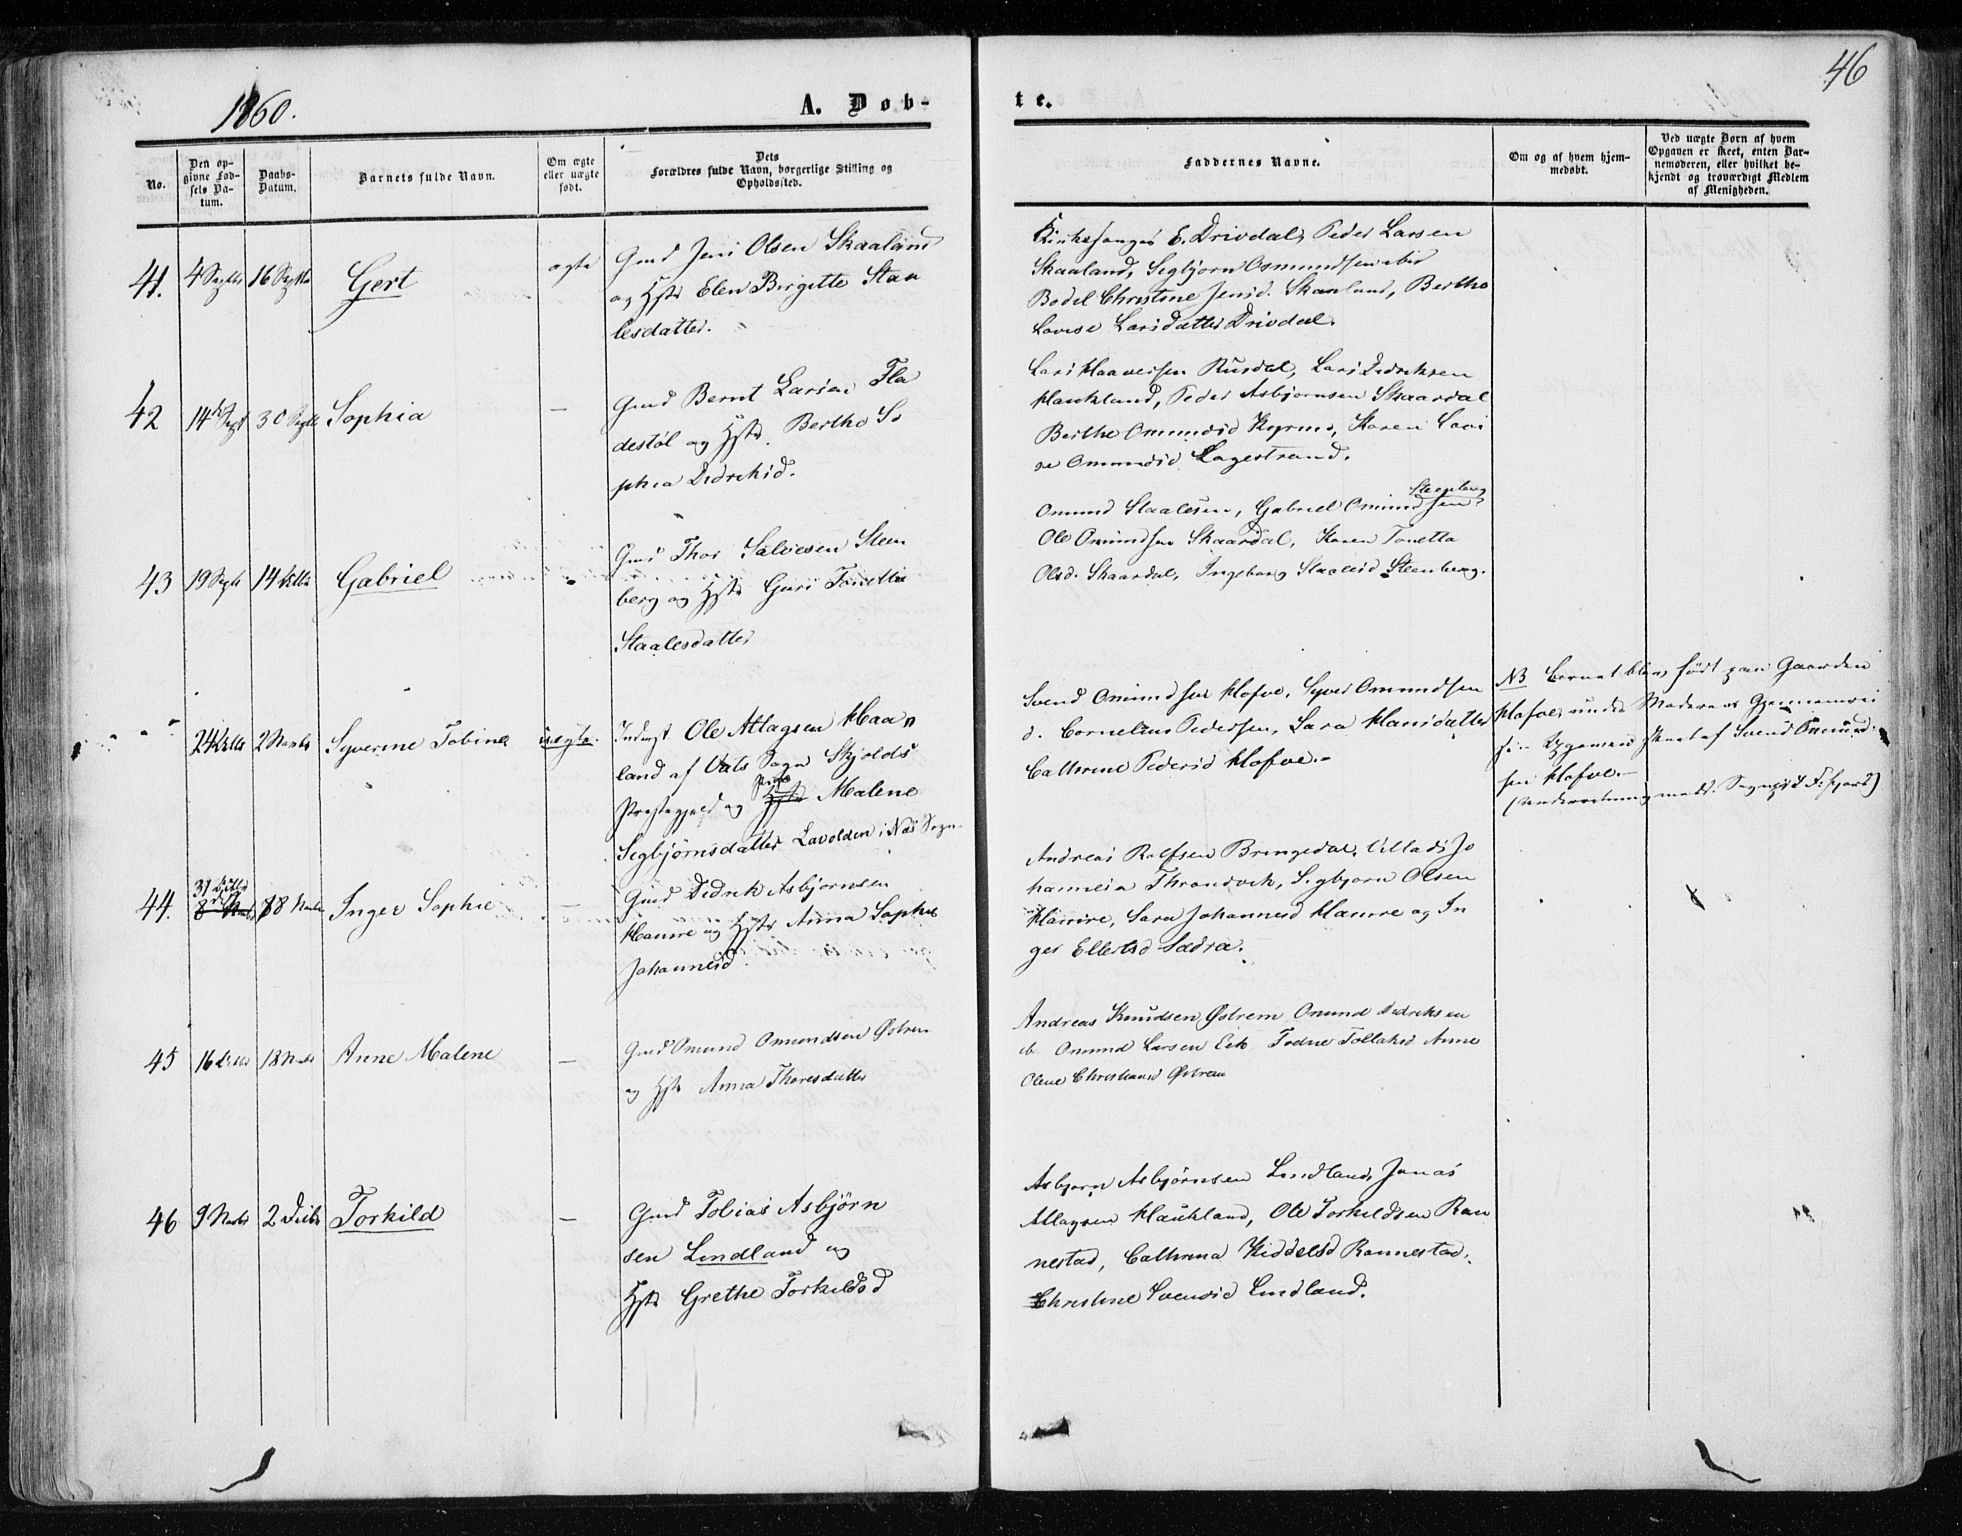 1860.
A. Døb-
te.
46
No.
Den op-
givne Fød-
sels Da-
tum.
Daabs-
Datum.
Barnets fulde Navn.
Om ægte
eller uægte
født.
Dets
Forældres fulde Navn, borgerlige Stilling og
Opholdssted.
Faddernes Navne.
Om og af hvem hjem-
medøbt.
Ved uægte Børn af hvem
Opgaven er skeet, enten Bar-
nemoderen, eller hvilket be-
kjendt og troværdigt Medlem
af Menigheden.
41. 4 Septbr 16 Septbr Gert ægte
Gmd Jens Olsen Skaaland
og Hstr Elen Birgitte Staa
lesdatter.
Kirkesanger E. Drivdal, Peder Larsen
Skaaland, Segbjørn Osmundsen ibid
Bodel Christine Jensd. Skaaland, Berthe
Lovise Larsdatter Drivdal.
42 14 Sept 30 Septbr Sophia —
Gmd Bernt Larsen Fla
destøl og Hstr. Berthe So
phia Didriksd.
Lars Haaversen Rusdal, Lars Didriksen
Haukland, Peder Asbjørnsen Skaardal
Berthe Omundsd Koprus, Karen Lovi
se Omundsd Lagestrand.
43 19 Septb 14 Octbr Gabriel
Gmd Thor Salvesen Steen
berg og Hstr Guri Tonette
Staalesdatter
Omund Staalesen, Gabriel Omundsen Steenberg
Ole Omundsen Skaardal, Karen Tonetta
Olsd. Skaardal, Ingeborg Staalesd Steenberg.
24 Octbr 2 Novbr Syverine Tobine uægte.
Inderst Ole Atlagsen Haa
land af Vats Sogn Skjolds
Præstegjeld og Pige Hstr Malene
Segbjørnsdatter Lavolden i Næs Sogn
Svend Omundsen Hofve, Syver Omundsen
d. Cornelius Pedersen, Sara Hansdatter
Cathrine Pedersd Hofve.
NB Barnet blev født paa Gaarden
Hofve under Moderens Gjennemrei
se af Svend Omund
sen Hofve.
44. 31 Octbr 8 Novbr 18 Novbr Inger Sophie —
Gmd Didrik Asbjørnsen
Hamre og Hstr Anna Sophie
Johannesd.
Andreas Rolfsen Bringedal, Jo
hannesen Throndvik, Segbjørn Olsen
Hamre, Sara Johannesd Hamre og In
ger Ellertsd Sædra.
45 16 Octbr 18 Novbr Anne Malene —
Gmd Omund Omundsen Østrem
og Hstr Anna Thoresdatter
Andreas Knudsen Østrem Omund Didriksen
ib. Omund Larsen Eek Todne Tollaksd Anne
Olene Christiansd Østrem
46 9 Novbr 2 Decbr Torkild —
Gmd Tobias Asbjørn
sen Lindland og
Hstr Grethe Torkildsd
Asbjørn Asbjørnsen Lindland, Jonas
Atlagsen Haukland, Ole Torkildsen Ran
nestad, Cathrina Kiddelsd Rannestad,
Christine Svensd Lindland.